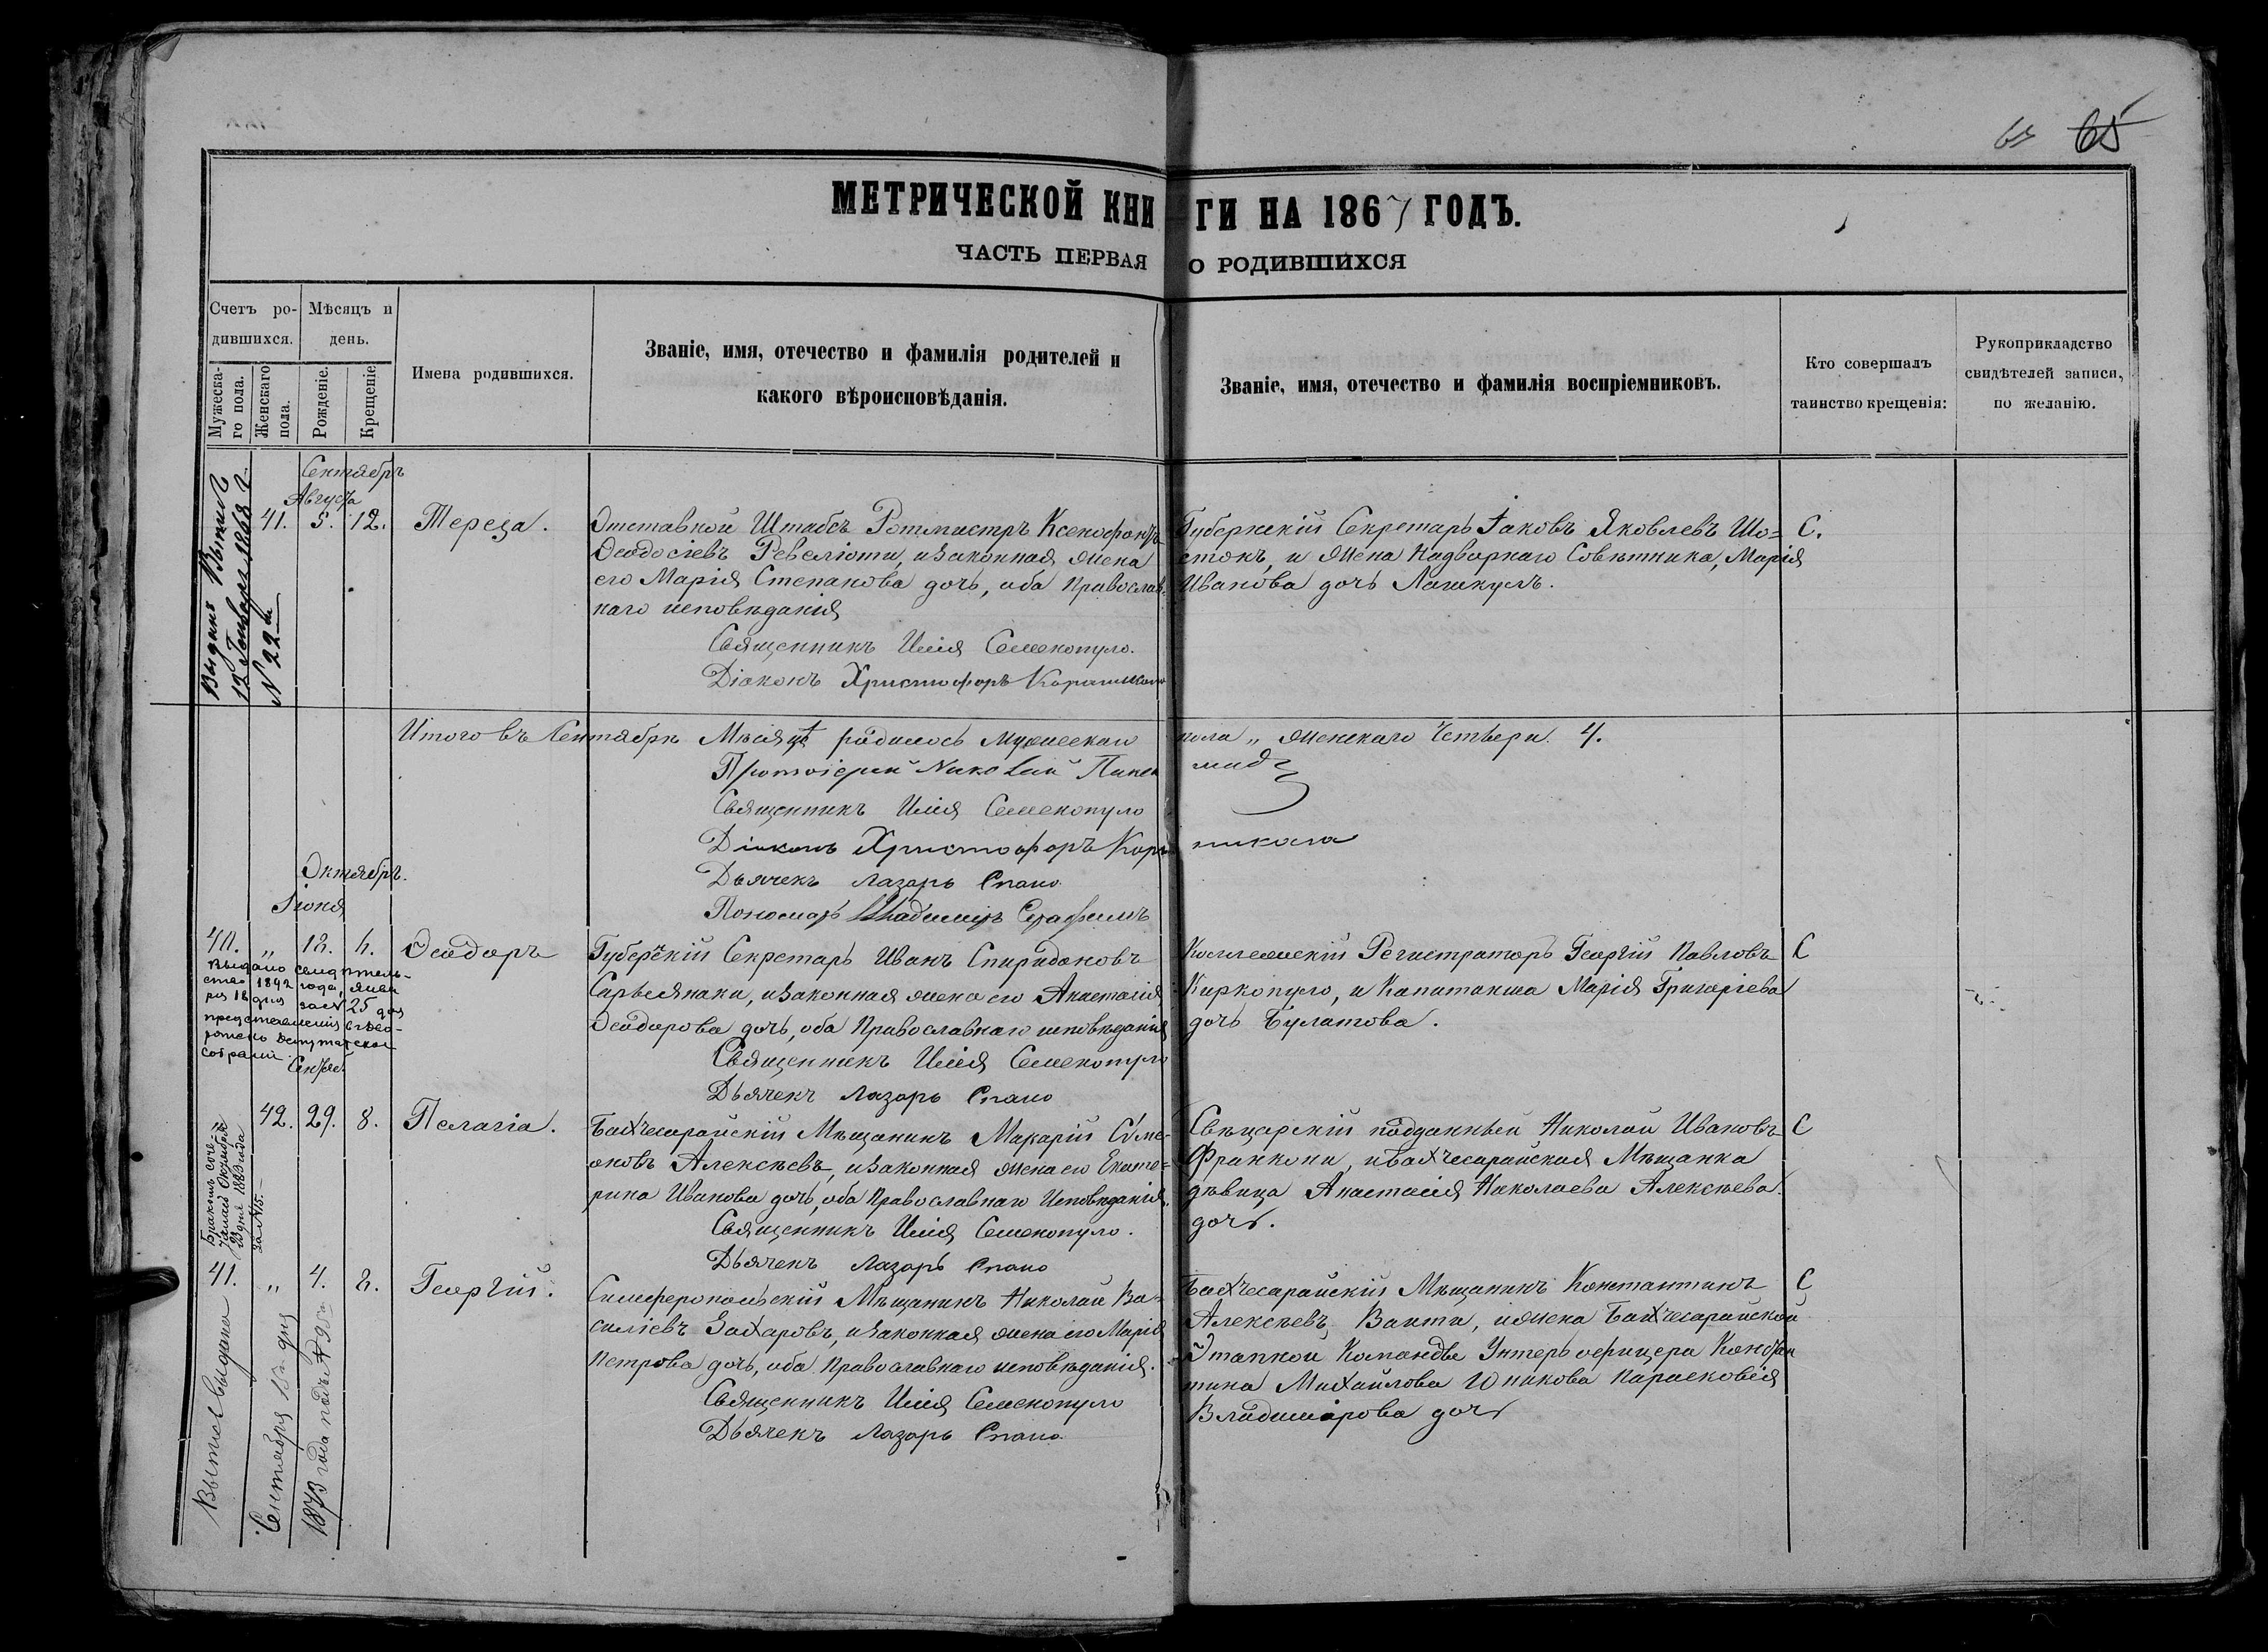 65 65
МЕТРИЧЕСКОЙ КНИГИ НА 1867 ГОДЪ.
ЧАСТЬ ПЕРВАЯ О РОДИВШИХСЯ
Счетъ родившихся.
Мужескаго пола.
Женскаго пола.
Мѣсяцъ и день.
Рожденіе.
Крещеніе.
Имена родившихся.
Званіе, имя, отечество и фамилія родителей и
какого вѣроисповѣданія.
Званіе, имя, отечество и фамилія воспріемниковъ.
Кто совершалъ
таинство крещенія:
Рукоприкладство
свидѣтелей записи,
по желанію.
Сентябрь
Августа
41. 5. 12. Тереза.
12 Генваря 1868 г.
N 22
Отставной Штабсъ Ротмистръ Ксенофонтъ
Ѳеодосіевъ Ревеліоти, и законная жена
его Марія Степанова дочь, оба Православ-
наго исповѣданія
Священникъ Илія Семенопуло.
Діаконъ Христофоръ
Губернскій Секретарь Іаковъ Яковлевъ Шо-
стокъ, и жена Надворнаго Совѣтника, Марія
Иванова дочь
С.
Итого въ Сентябрѣ Мѣсяцѣ родилось мужескаго пола „ женскаго четыре. 4.
Протоіерей Николай
Священникъ Илія Семенопуло
Діаконъ Христофоръ
Дьячекъ Лазарь Спано
Пономарь Владиміръ Серафимъ
Октябрь.
Іюня
40. „ 12. 4. Ѳеодоръ
Выдано свидѣтель-
ство 1892 года, янва
ря 18 дня за N 25 для
представленія въ Дво-
рянское Депутатское
Собраніе.
Губернскій Секретарь Иванъ Спиридоновъ
Сарьянаки, и законная жена его Анастасія
Ѳеодорова дочь, оба Православнаго исповѣданія
Священникъ Илія Семенопуло
Дьячекъ Лазарь Спано
Коллежскій Регистраторъ Георгій Павловъ
Киркопуло, и Капитанша Марія Григоріева
дочь Булатова.
С
Сентяб.
42. 29. 8. Пелагія.
Бракомъ соче-
талась Октября
23 дня 1883 года
за N 15.
Бахчесарайскій Мѣщанинъ Макарій Симе-
оновъ Алексѣевъ, и законная жена его Екате-
рина Иванова дочь, оба Православнаго Исповѣданія.
Священникъ Илія Семенопуло.
Дьячекъ Лазарь Спано
Свѣцарскій подданный Николай Ивановъ
Франкони, и Бахчесарайская Мѣщанка
дѣвица Анастасія Николаева Алексѣева
дочь.
С
41. „ 4. 8. Георгій.
Выпись выдана
Сентября 18 дня
1873 года подъ N 95
Симферопольскій Мѣщанинъ Николай Ва-
силіевъ Захаровъ, и законная жена его Марія
Петрова дочь, оба Православнаго исповѣданія.
Священникъ Илія Семенопуло
Дьячекъ Лазарь Спано
Бахчесарайскій Мѣщанинъ Константинъ
Алексѣевъ Ваити, и жена Бахчесарайской
Этапной Команды Унтеръ офицера Констан
тина Михайлова Юникова Параскевія
Владимірова дочь
С